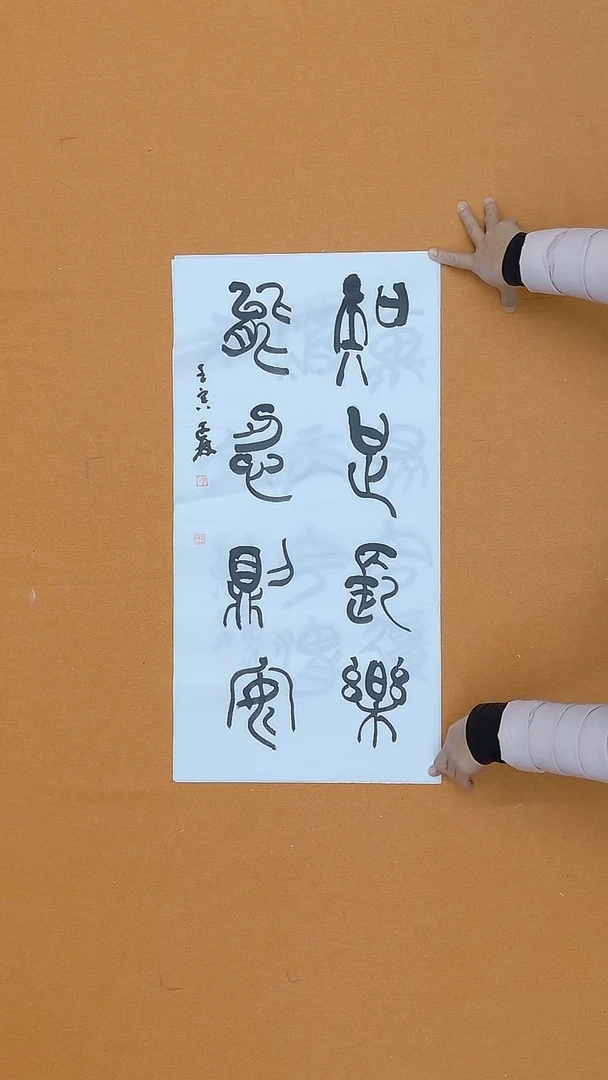 知足樂
能忍則安
壬寅